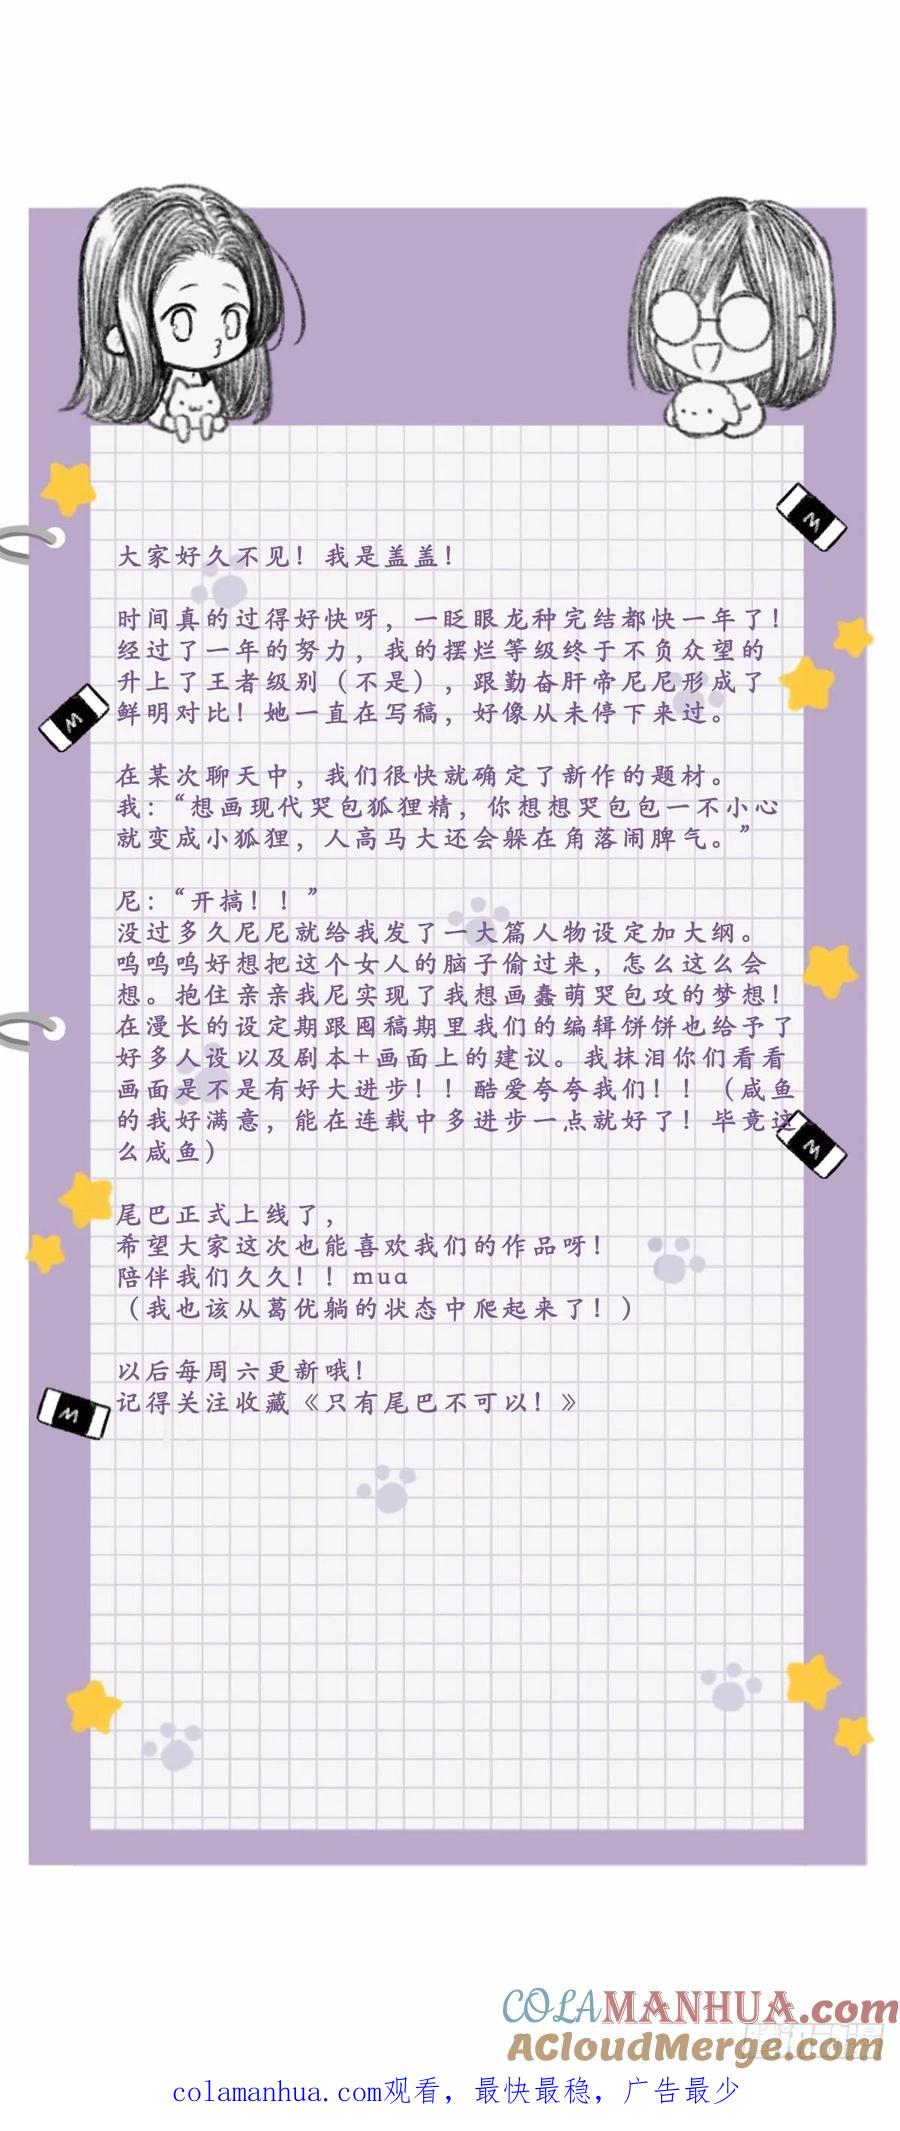 大家好久不见！我是盖盖！
时间真的过得好快呀，一眨眼龙种完结都快一年了！
经过了一年的努力，我的摆烂等级终于不负众望的
升上了王者级别（不是），跟勤奋肝帝尼尼形成了
鲜明对比！她一直在写稿，好像从未停下来过。
在某次聊天中，我们很快就确定了新作的题材。
我：“想画现代哭包狐狸精，你想想哭包包一不小心
就变成小狐狸，人高马大还会躲在角落闹脾气。”
尼：“开搞！！”
没过多久尼尼就给我发了一大篇人物设定加大纲。
呜呜呜好想把这个女人的脑子偷过来，怎么这么会
想。抱住亲亲我尼实现了我想画蠢萌哭包攻的梦想！
在漫长的设定期跟囤稿期里我们的编辑饼饼也给予了
好多人设以及剧本+画面上的建议。我抹泪你们看看
画面是不是有好大进步！！酷爱夸夸我们！！（咸鱼
的我好满意，能在连载中多进步一点就好了！毕竟这
么咸鱼）
尾巴正式上线了，
希望大家这次也能喜欢我们的作品呀！
陪伴我们久久！！mua
（我也该从葛优躺的状态中爬起来了！）
以后每周六更新哦！
记得关注收藏《只有尾巴不可以！》
M
M
M
M
COLAMANHUA.com
ACloudMerge.com
colamanhua.com观看，最快最稳，广告最少